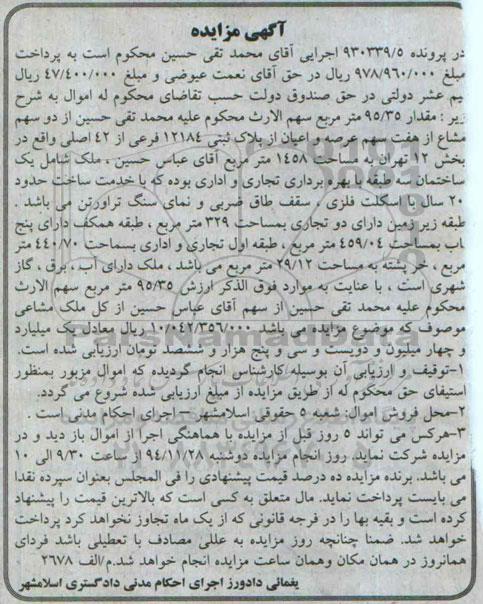 آگهی مزایده
در پرونده ۹۳۰۳۳۹/۵ اجرایی آقای محمد تقی حسین محکوم است به پرداخت
مبلغ ۹۷۸/۹۶۰/۰۰۰ ریال در حق آقای نعمت عیوضی و مبلغ ۴۷/۴۰۰/۰۰۰ ریال
نیم عشر دولتی در حق صندوق دولت حسب تقاضای محکوم له اموال به شرح
زیر : مقدار ۹۵/۳۵ متر مربع سهم الارث محکوم علیه محمد تقی حسین از دو سهم
مشاع از هفت سهم عرصه و اعیان از پلاک ثبتی ۱۲۱۸۴ فرعی از ۴۲ اصلی واقع در
بخش ۱۲ تهران به مساحت ۱۴۵۸ متر مربع آقای عباس حسین ، ملک شامل یک
ساختمان سه طبقه با بهره برداری تجاری و اداری بوده که با خدمت ساخت حدود
۲۰ سال با اسکلت فلزی ، سقف طاق ضربی و نمای سنگ تراورتن می باشد .
طبقه زیرزمین دارای دو تجاری بمساحت ۳۲۹ متر مربع ، طبقه همکف دارای پنج
باب بمساحت ۴۵۹/۰۴ متر مربع ، طبقه اول تجاری و اداری بسماحت ۴۴۰/۷۰ متر
مربع ، خر پشته به مساحت ۲۹/۱۲ متر مربع می باشد ، ملک دارای آب ، برق ، گاز
شهری است ، با عنایت به موارد فوق الذکر ارزش ۹۵/۳۵ متر مربع سهم الارث
محکوم علیه محمد تقی حسین از سهم آقای عباس حسین از کل ملک مشاعی
موصوف که موضوع مزایده می باشد ۱۰/۰۴۲/۳۵۶/۰۰۰ ریال معادل یک میلیارد
و چهار میلیون و دویست و سی و پنج هزار و ششصد تومان ارزیابی شده است.
۱-توقیف و ارزیابی آن بوسیله کارشناس انجام گردیده که اموال مزبور بمنظور
استیفای حق محکوم له از طریق مزایده از مبلغ ارزیابی شده شروع می گردد.
۲-محل فروش اموال: شعبه ۵ حقوقی اسلامشهر-اجرای احکام مدنی است .
۳-هرکس می تواند ۵ روز قبل از مزایده با هماهنگی اجرا از اموال باز دید و در
مزایده شرکت نماید. روز انجام مزایده دوشنبه ۹۴/۱۱/۲۸ از ساعت ۹/۳۰ الی ۱۰
می باشد. برنده مزایده ده درصد قیمت پیشنهادی را فی المجلس بعنوان سپرده نقدا
می بایست پرداخت نماید. مال متعلق به کسی است که بالاترین قیمت را پیشنهاد
کرده است و بقیه بها را در فرجه قانونی که از یک ماه تجاوز نخواهد کرد پرداخت
خواهد شد. ضمنا چنانچه روز مزایده به عللی مصادف با تعطیلی باشد فردای
همانروز در همان مکان وهمان ساعت مزایده انجام خواهد شد.م/الف ۲۶۷۸
یغمائی دادورز اجرای احکام مدنی دادگستری اسلامشهر
ParsNamadData